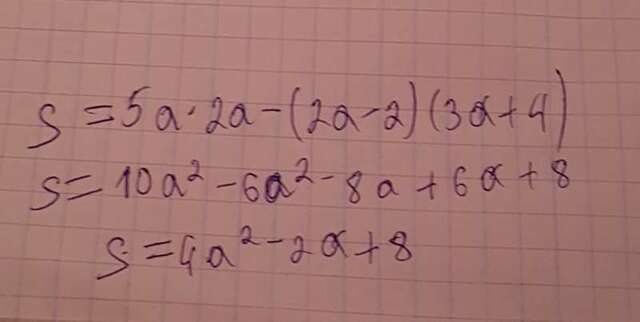 S = 5a · 2a - (2a - 2)(3a + 4)
S = 10a² - 6a² - 8a + 6a + 8
S = 4a² - 2a + 8